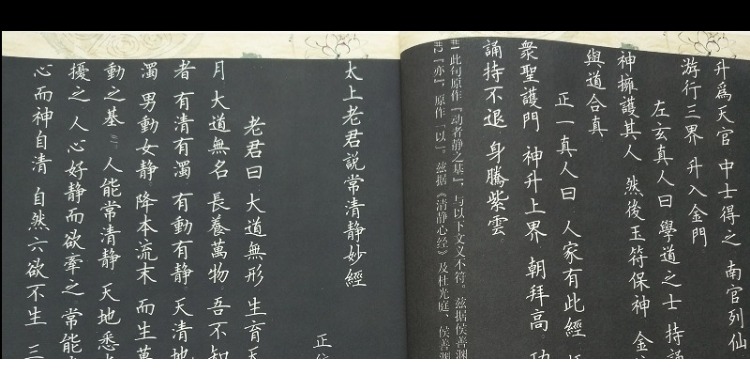 升爲天官 中士得之 南宮列仙
游行三界 升入金門
左玄真人曰 學道之士 持誦
神擁護其人 然後玉符保神 金
與道合真
正一真人曰 人家有此經
衆聖護門 神升上界 朝拜高 功
誦持不退 身騰紫雲
注1 此句原作『动者静之基』,与以下文义不符。兹据侯善渊
注2『亦』,原作『以』,兹据《清静心经》及杜光庭、侯善渊
太上老君説常清静妙經
正
老君曰 大道無形 生育天
月 大道無名 長養萬物 吾不知
者 有清有濁 有動有静 天清地
濁 男動女静 降本流末 而生萬
動之基 人能常清静 天地悉
擾之 人心好静 而欲牽之 常能
心而神自清 自然六欲不生 三